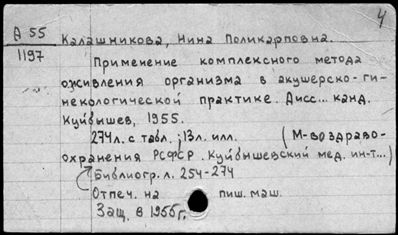 4
А 55
1197
Калашникова, Нина Поликарповна.
Применение комплексного метода
оживления организма в акушерско-ги-
некологической практике. Дисс... канд.
Куйбышев, 1955.
274л. с табл.; 13л. илл. (М-во здраво-
охранения РСФСР. Куйбышевский мед. ин-т...)
Библиогр. л. 254-274
Отпеч. на пиш. маш.
Защ. в 1956г.